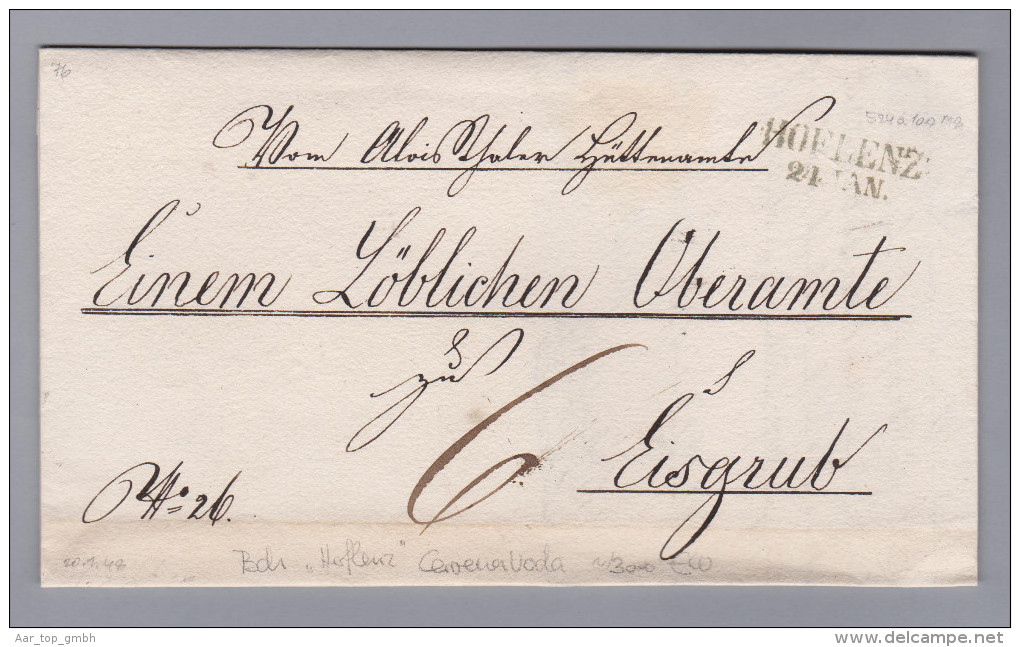 76
594a 100
Vom Alois Thaler Hüttenamte
HOFLENZ
24 JAN.
Einem Löblichen Oberamte
zu
6
Eisgrub
No. 26.
20.1.42
Bch „Hoflenz" Cervena Voda
Aar_top_gmbh
www.delcampe.net